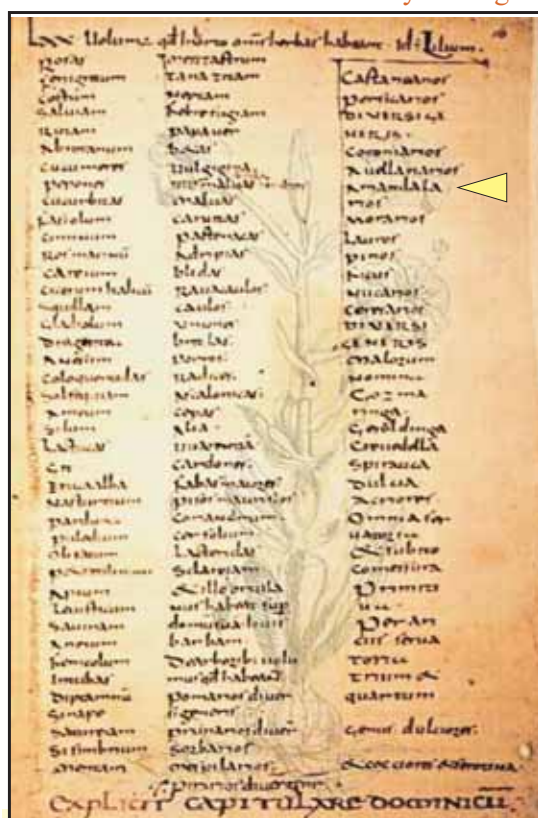 LXX Uolum qđ In horto omnes herbas habeant Id Lilium.
Rosas
Fenigrecum
Costum
Saluiam
Rutam
Abrotanum
Cucumeres
Pepones
Cucurbitas
Fasiolum
Ciminum
Ros marinum
Careium
Cicerum italicum
Squillam
Gladiolum
Dragantea
Anesum
Coloquentidas
Solsequiam
Ameum
Silum
Lactucas
Git
Eruca alba
Nasturtium
Parduna
Puledium
Olisatum
Petresilinum
Apium
Leuisticum
Sauinam
Anetum
Fenicolum
Intubas
Diptamnū
Sinape
Satureiam
Sisimbrium
Mentam
Mentastrum
Tanazitam
Neptam
Febrefugiam
Papauer
Betas
Uulgigina
maluas
Caruitas
Pastenacas
Adripias
Blidas
Rauacaulos
Caulos
Uniones
Britlas
Porros
Radices
Ascalonicas
Cepas
Alia
Uuarentia
Cardones
Fabas maiores
Pisos mauriscos
Coriandrum
Cerfolium
Lacteridas
Sclareiam
Et ille ortula
nus habeat sup
domum suā Iouis
barbam
De arboribus uolu
mus qđ habeant
Pomarios diuer
si generis
Prunarios diuer
Sorbarios
Mespilarios
Pirarios diu gener
Castanearios
Persicarios
DIUERSI GE
NERIS
Cotoniarios
Auellanarios
Amandala
rios
Morarios
Lauros
Pinos
Ficus
Nucarios
Ceresarios
DIUERSI
GENERIS
Malorum
Nomina
Gozma
ringa
Geroldinga
Creuedella
Spirauca
Dulcia
Acriores
Omnia ser
uatoria
Et subito
Comessura
Primiti
ua
Perari
ciis serua
toria
Trium et
quartum
Genus dulciores
et cocciores et serotina
EXPLICIT CAPITULARE DOMINICŪ